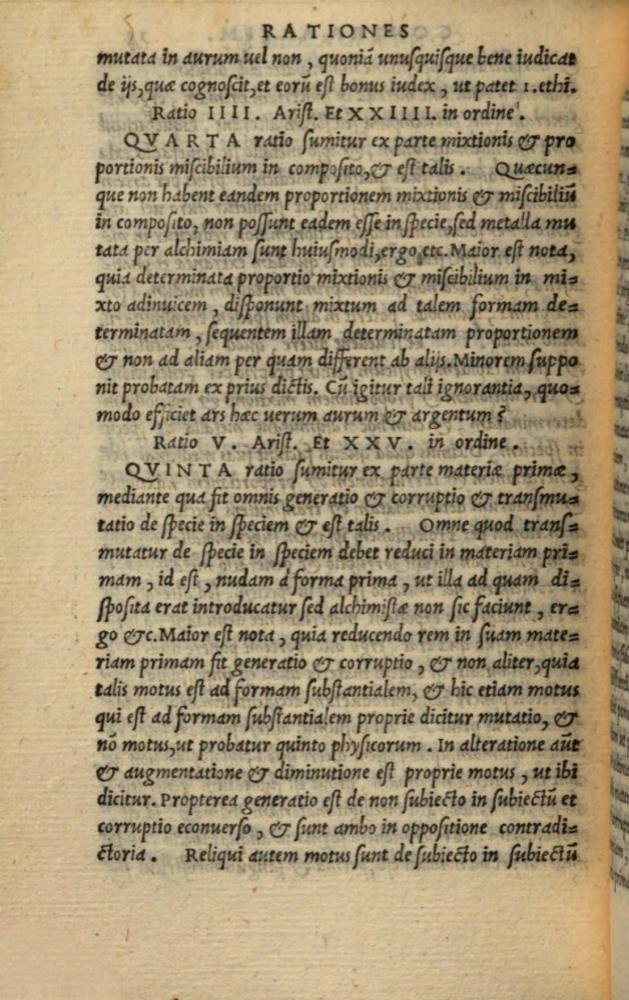 RATIONES
mutata in aurum uel non, quoniã unusquisque bene iudicat
de ijs, quæ cognoscit, et eorũ est bonus iudex, ut patet 1. ethi.
Ratio IIII. Arist. Et XXIIII. in ordine.
QVARTA ratio sumitur ex parte mixtionis & pro
portionis miscibilium in composito, & est talis. Quæcun=
que non habent eandem proportionem mixtionis & miscibiliũ
in composito, non possunt eadem esse in specie, sed metalla mu
tata per alchimiam sunt huiusmodi, ergo, etc. Maior est nota,
quia determinata proportio mixtionis & miscibilium in mi=
xto adinuicem, disponunt mixtum ad talem formam de=
terminatam, sequentem illam determinatam proportionem
& non ad aliam per quam different ab alijs. Minorem suppo
nit probatam ex prius dictis. Cũ igitur tali ignorantia, quo=
modo efficiet ars hæc uerum aurum & argentum?
Ratio V. Arist. Et XXV. in ordine.
QVINTA ratio sumitur ex parte materiæ primæ,
mediante qua fit omnis generatio & corruptio & transmu=
tatio de specie in speciem & est talis. Omne quod trans=
mutatur de specie in speciem debet reduci in materiam pri=
mam, id est, nudam à forma prima, ut illa ad quam di=
sposita erat introducatur sed alchimistæ non sic faciunt, er=
go &c. Maior est nota, quia reducendo rem in suam mate=
riam primam fit generatio & corruptio, & non aliter, quia
talis motus est ad formam substantialem, & hic etiam motus
qui est ad formam substantialem proprie dicitur mutatio, &
nõ motus, ut probatur quinto physicorum. In alteratione aũt
& augmentatione & diminutione est proprie motus, ut ibi
dicitur. Propterea generatio est de non subiecto in subiectũ et
corruptio econuerso, & sunt ambo in oppositione contradi=
ctoria. Reliqui autem motus sunt de subiecto in subiectũ